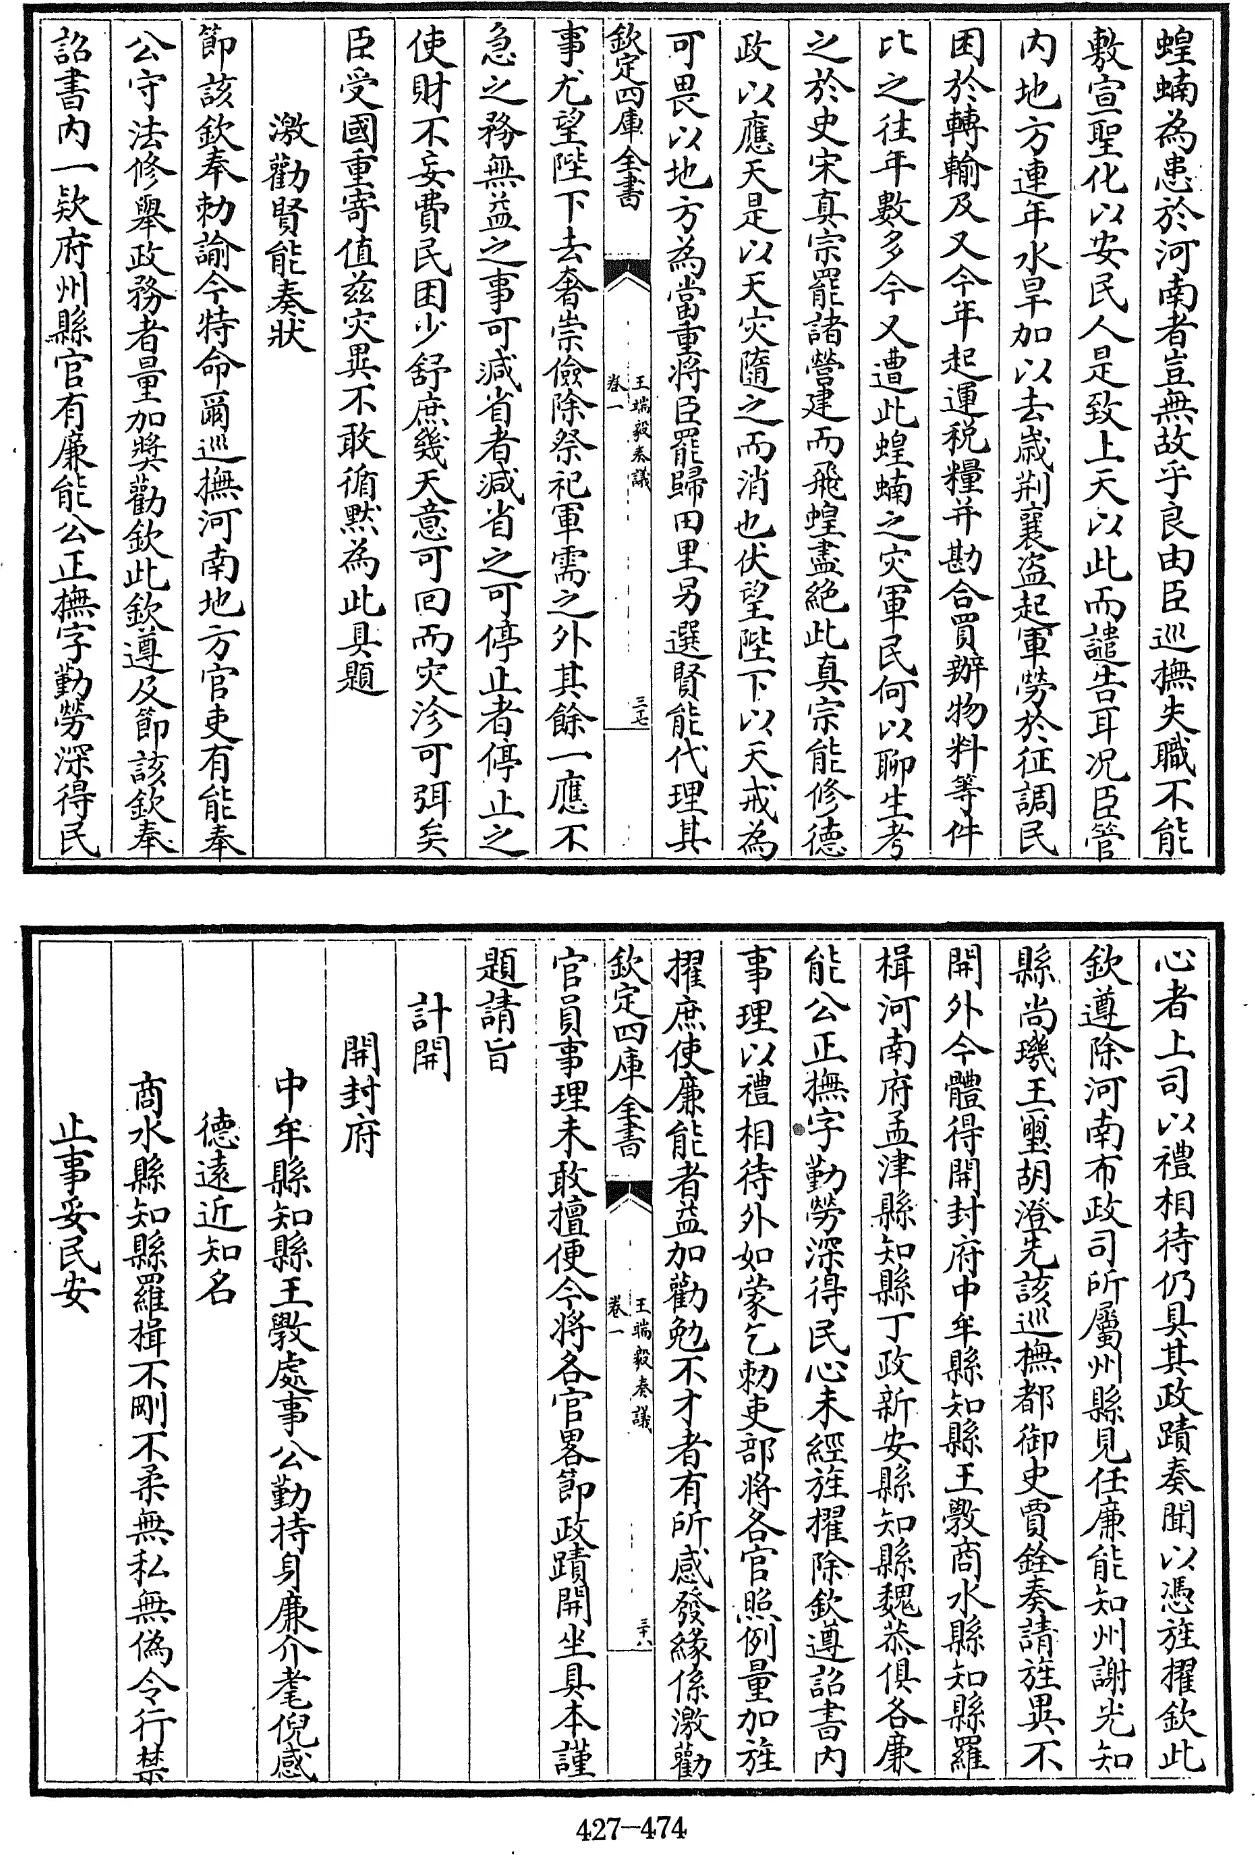 蝗蝻為患於河南者豈無故乎良由臣巡撫失職不能
敷宣聖化以安民人是致上天以此而譴告耳况臣管
内地方連年水旱加以去歲荆襄盗起軍勞於征調民
困於轉輸及又今年起運税糧并勘合買辦物料等件
比之往年數多今又遭此蝗蝻之灾軍民何以聊生考
之於史宋真宗罷諸營建而飛蝗盡絶此真宗能修德
政以應天是以天灾隨之而消也伏望陛下以天戒為
可畏以地方為當重將臣罷歸田里另選賢能代理其
欽定四庫全書
王端毅奏議
卷一
三十七
事尤望陛下去奢崇儉除祭祀軍需之外其餘一應不
急之務無益之事可減省者減省之可停止者停止之
使財不妄費民困少舒庶幾天意可回而灾沴可弭矣
臣受國重寄值兹灾異不敢循默為此具題
激勸賢能奏狀
節該欽奉勅諭今特命爾巡撫河南地方官吏有能奉
公守法修舉政務者量加奬勸欽此欽遵及節該欽奉
詔書内一欵府州縣官有廉能公正撫字勤勞深得民
心者上司以禮相待仍具其政蹟奏聞以憑旌擢欽此
欽遵除河南布政司所屬州縣見任廉能知州謝光知
縣尚璣王璽胡澄先該巡撫都御史賈銓奏請旌異不
開外今體得開封府中牟縣知縣王斅商水縣知縣羅
楫河南府孟津縣知縣丁政新安縣知縣魏恭俱各廉
能公正撫字勤勞深得民心未經旌擢除欽遵詔書内
事理以禮相待外如蒙乞勅吏部將各官照例量加旌
擢庶使廉能者益加勸勉不才者有所感發緣係激勸
欽定四庫全書
王端毅奏議
卷一
三十八
官員事理未敢擅便今將各官畧節政蹟開坐具本謹
題請旨
計開
開封府
中牟縣知縣王斅處事公勤持身廉介耄倪感
德遠近知名
商水縣知縣羅楫不剛不柔無私無偽令行禁
止事妥民安
427-474